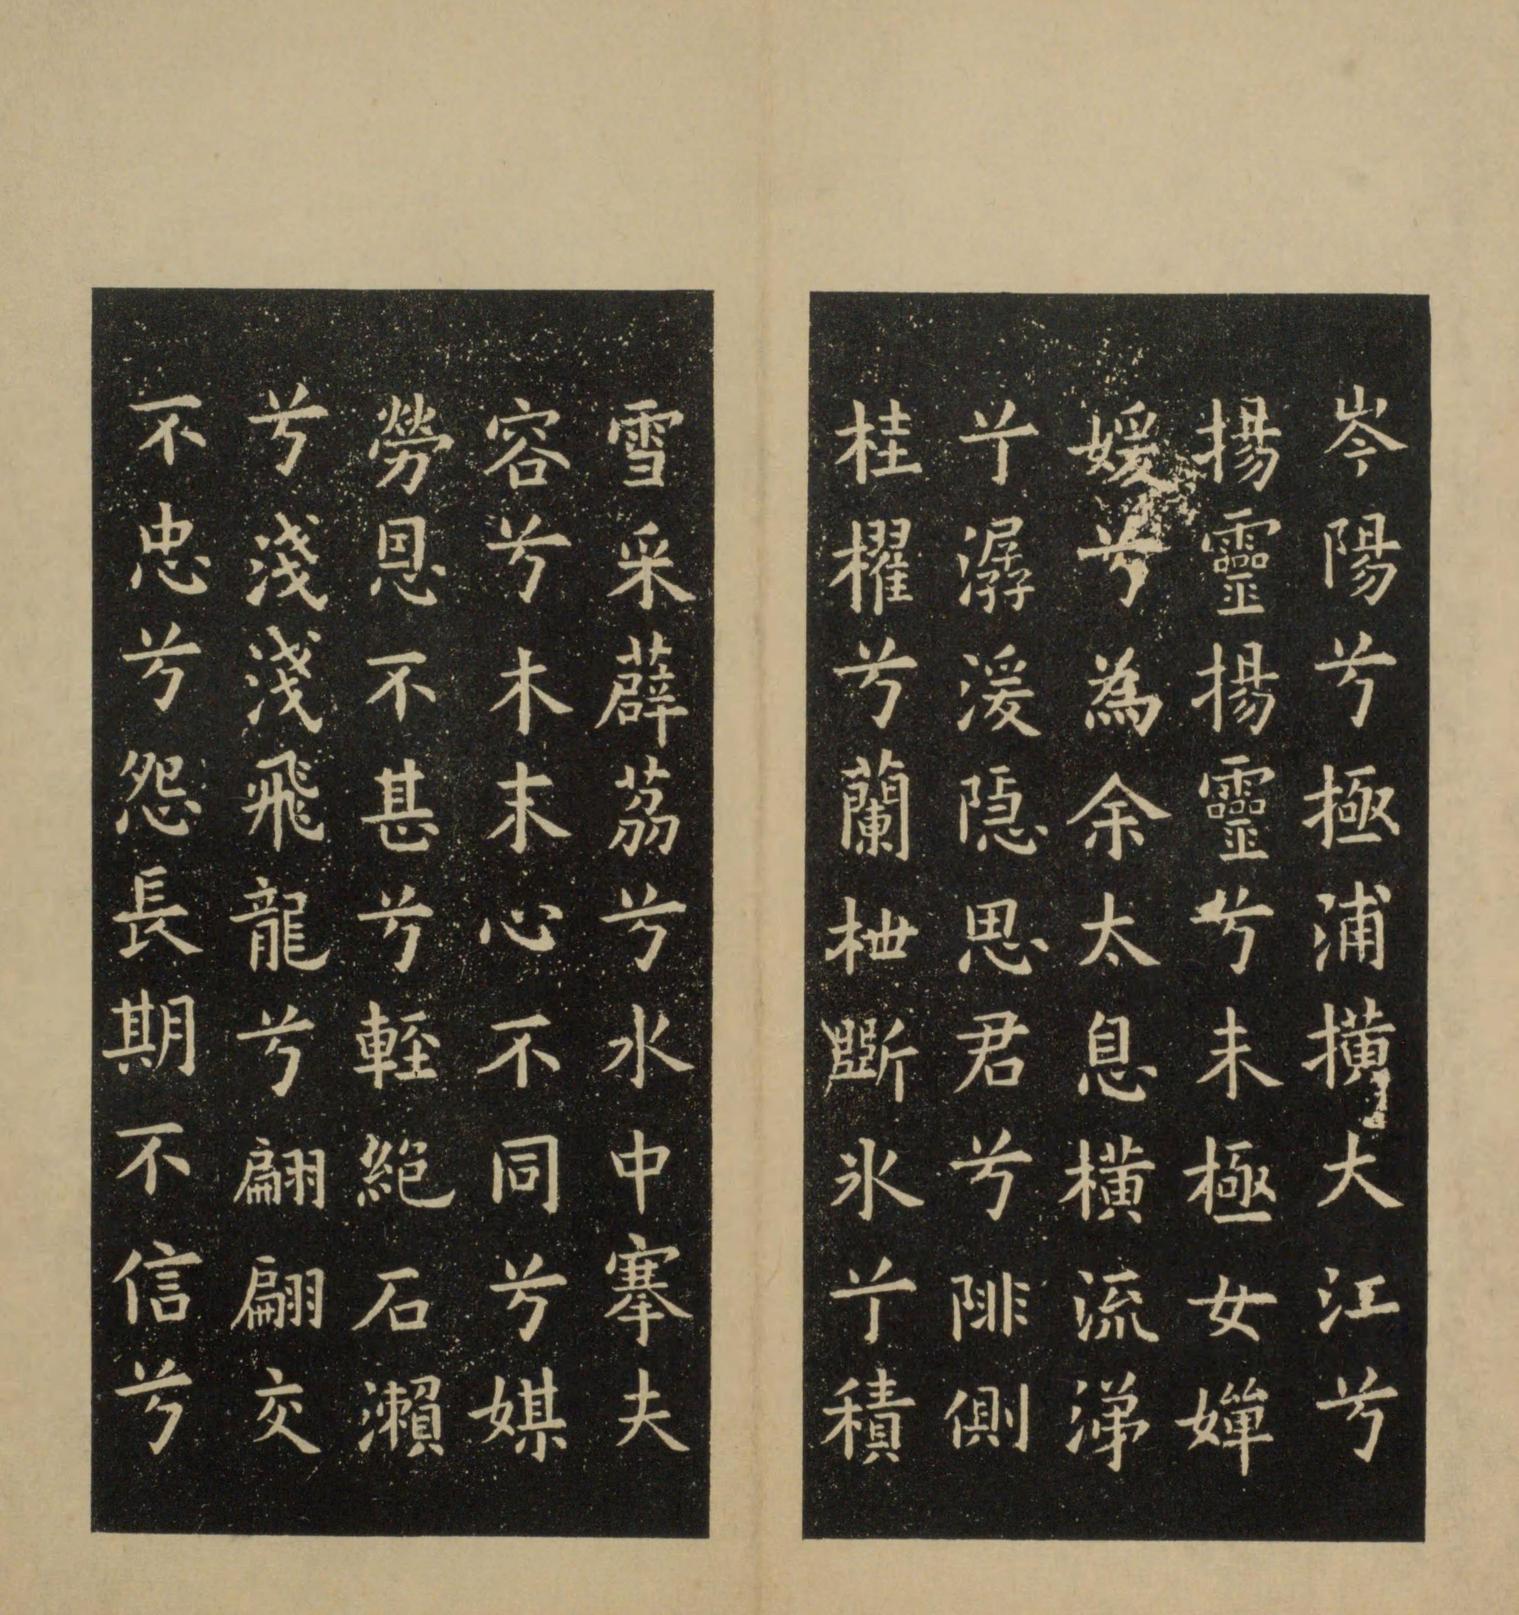 岑陽兮極浦橫大江兮
揚靈揚靈兮未極女嬋
媛兮為余太息橫流涕
兮潺湲隱思君兮陫側
桂櫂兮蘭枻斲氷兮積
雪采薜茘兮水中搴夫
容兮木末心不同兮媒
勞恩不甚兮輕絕石瀨
兮淺淺飛龍兮翩翩交
不忠兮怨長期不信兮